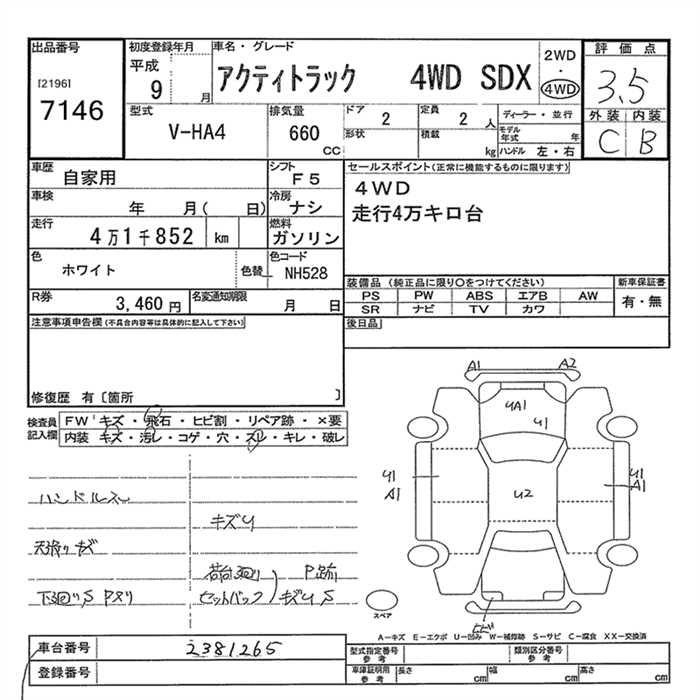 出品番号
[2196]
7146
初度登録年月
平成 9 月
車名・グレード
アクティトラック 4WD SDX
2WD
・
4WD
評価点
3.5
外装 内装
C B
型式
V-HA4
排気量
660 CC
ドア 2
形状
定員 2 人
積載 kg
ディーラー・並行
モデル年式 年
ハンドル 左・右
車歴 自家用
シフト F5
車検 年 月( 日)
冷房 ナシ
走行 4万1千852 km
燃料 ガソリン
色 ホワイト
色替
色コード NH528
R券 3,460 円
名変通知期限 月 日
セールスポイント(正常に機能するものに限ります)
4WD
走行4万キロ台
装備品 (純正品に限り○をつけてください)
PS PW ABS エアB AW
SR ナビ TV カワ
新車保証書
有・無
後日品
注意事項申告欄(不具合内容等は具体的に記入して下さい)
修復歴 有〔箇所 〕
検査員記入欄
FW キズ・飛石・ヒビ割・リペア跡・×要
内装 キズ・汚レ・コゲ・穴・スレ・キレ・破レ
ハンドルスレ
キズU
天張りキズ
荷台廻り P跡
下廻りS Pヌリ
セットバック キズU S
A1 A2
UA1
U1
U1
A1
U2
U1
A1
スペア
A-キズ E-エクボ U-凹み W-補修跡 S-サビ C-腐食 XX-交換済
車台番号 2381265
登録番号
型式指定番号 参考
類別区分番号 参考
車庫証明用 参考
長さ cm 幅 cm 高さ cm